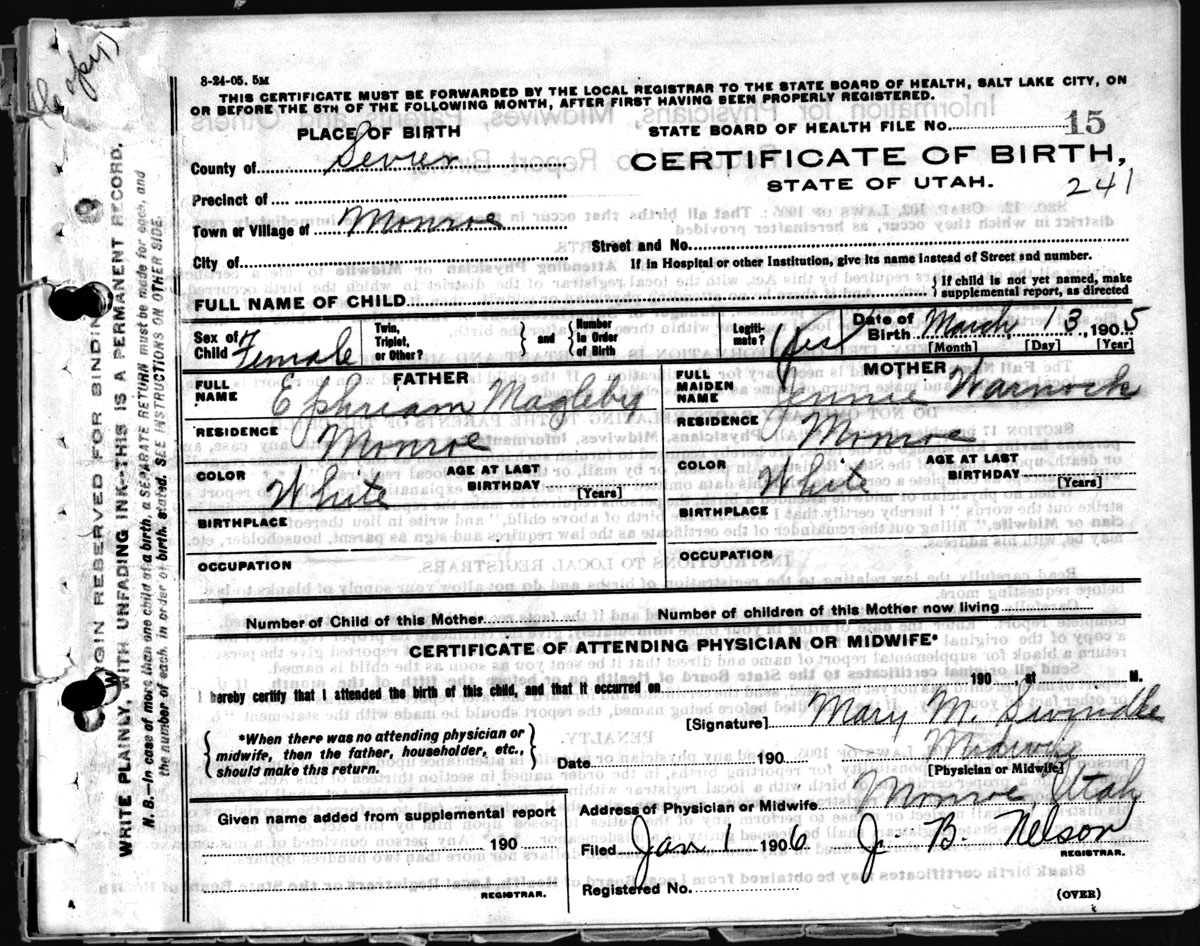 (Copy)
8-24-05. 5M
THIS CERTIFICATE MUST BE FORWARDED BY THE LOCAL REGISTRAR TO THE STATE BOARD OF HEALTH, SALT LAKE CITY, ON
OR BEFORE THE 5TH OF THE FOLLOWING MONTH, AFTER FIRST HAVING BEEN PROPERLY REGISTERED.
PLACE OF BIRTH
STATE BOARD OF HEALTH FILE NO. 15
County of Sevier
CERTIFICATE OF BIRTH,
STATE OF UTAH.
241
Precinct of
Town or Village of Monroe
Street and No.
City of
If in Hospital or other Institution, give its name instead of Street and number.
FULL NAME OF CHILD
{ If child is not yet named, make
supplemental report, as directed
Sex of
Child Female
Twin,
Triplet,
or Other?
} and {
Number
in Order
of Birth
Legiti-
mate? Yes
Date of
Birth March 13 1905
[Month] [Day] [Year]
FATHER
FULL
NAME Ephriam Magleby
RESIDENCE Monroe
COLOR White
AGE AT LAST
BIRTHDAY
[Years]
BIRTHPLACE
OCCUPATION
MOTHER
FULL
MAIDEN
NAME Jennie Warnock
RESIDENCE Monroe
COLOR White
AGE AT LAST
BIRTHDAY
[Years]
BIRTHPLACE
OCCUPATION
Number of Child of this Mother
Number of children of this Mother now living
CERTIFICATE OF ATTENDING PHYSICIAN OR MIDWIFE*
I hereby certify that I attended the birth of this child, and that it occurred on 190 , at M.
[Signature] Mary M. Swindle
{ *When there was no attending physician or
midwife, then the father, householder, etc.,
should make this return. }
Date 190
Midwife
[Physician or Midwife]
Given name added from supplemental report
190
REGISTRAR.
Address of Physician or Midwife Monroe, Utah
Filed Jan 1 1906 J. B. Nelson
REGISTRAR.
Registered No.
(OVER)
MARGIN RESERVED FOR BINDING
WRITE PLAINLY, WITH UNFADING INK—THIS IS A PERMANENT RECORD.
N. B.—In case of more than one child at a birth, a SEPARATE RETURN must be made for each, and
the number of each, in order of birth, stated. SEE INSTRUCTIONS ON OTHER SIDE.